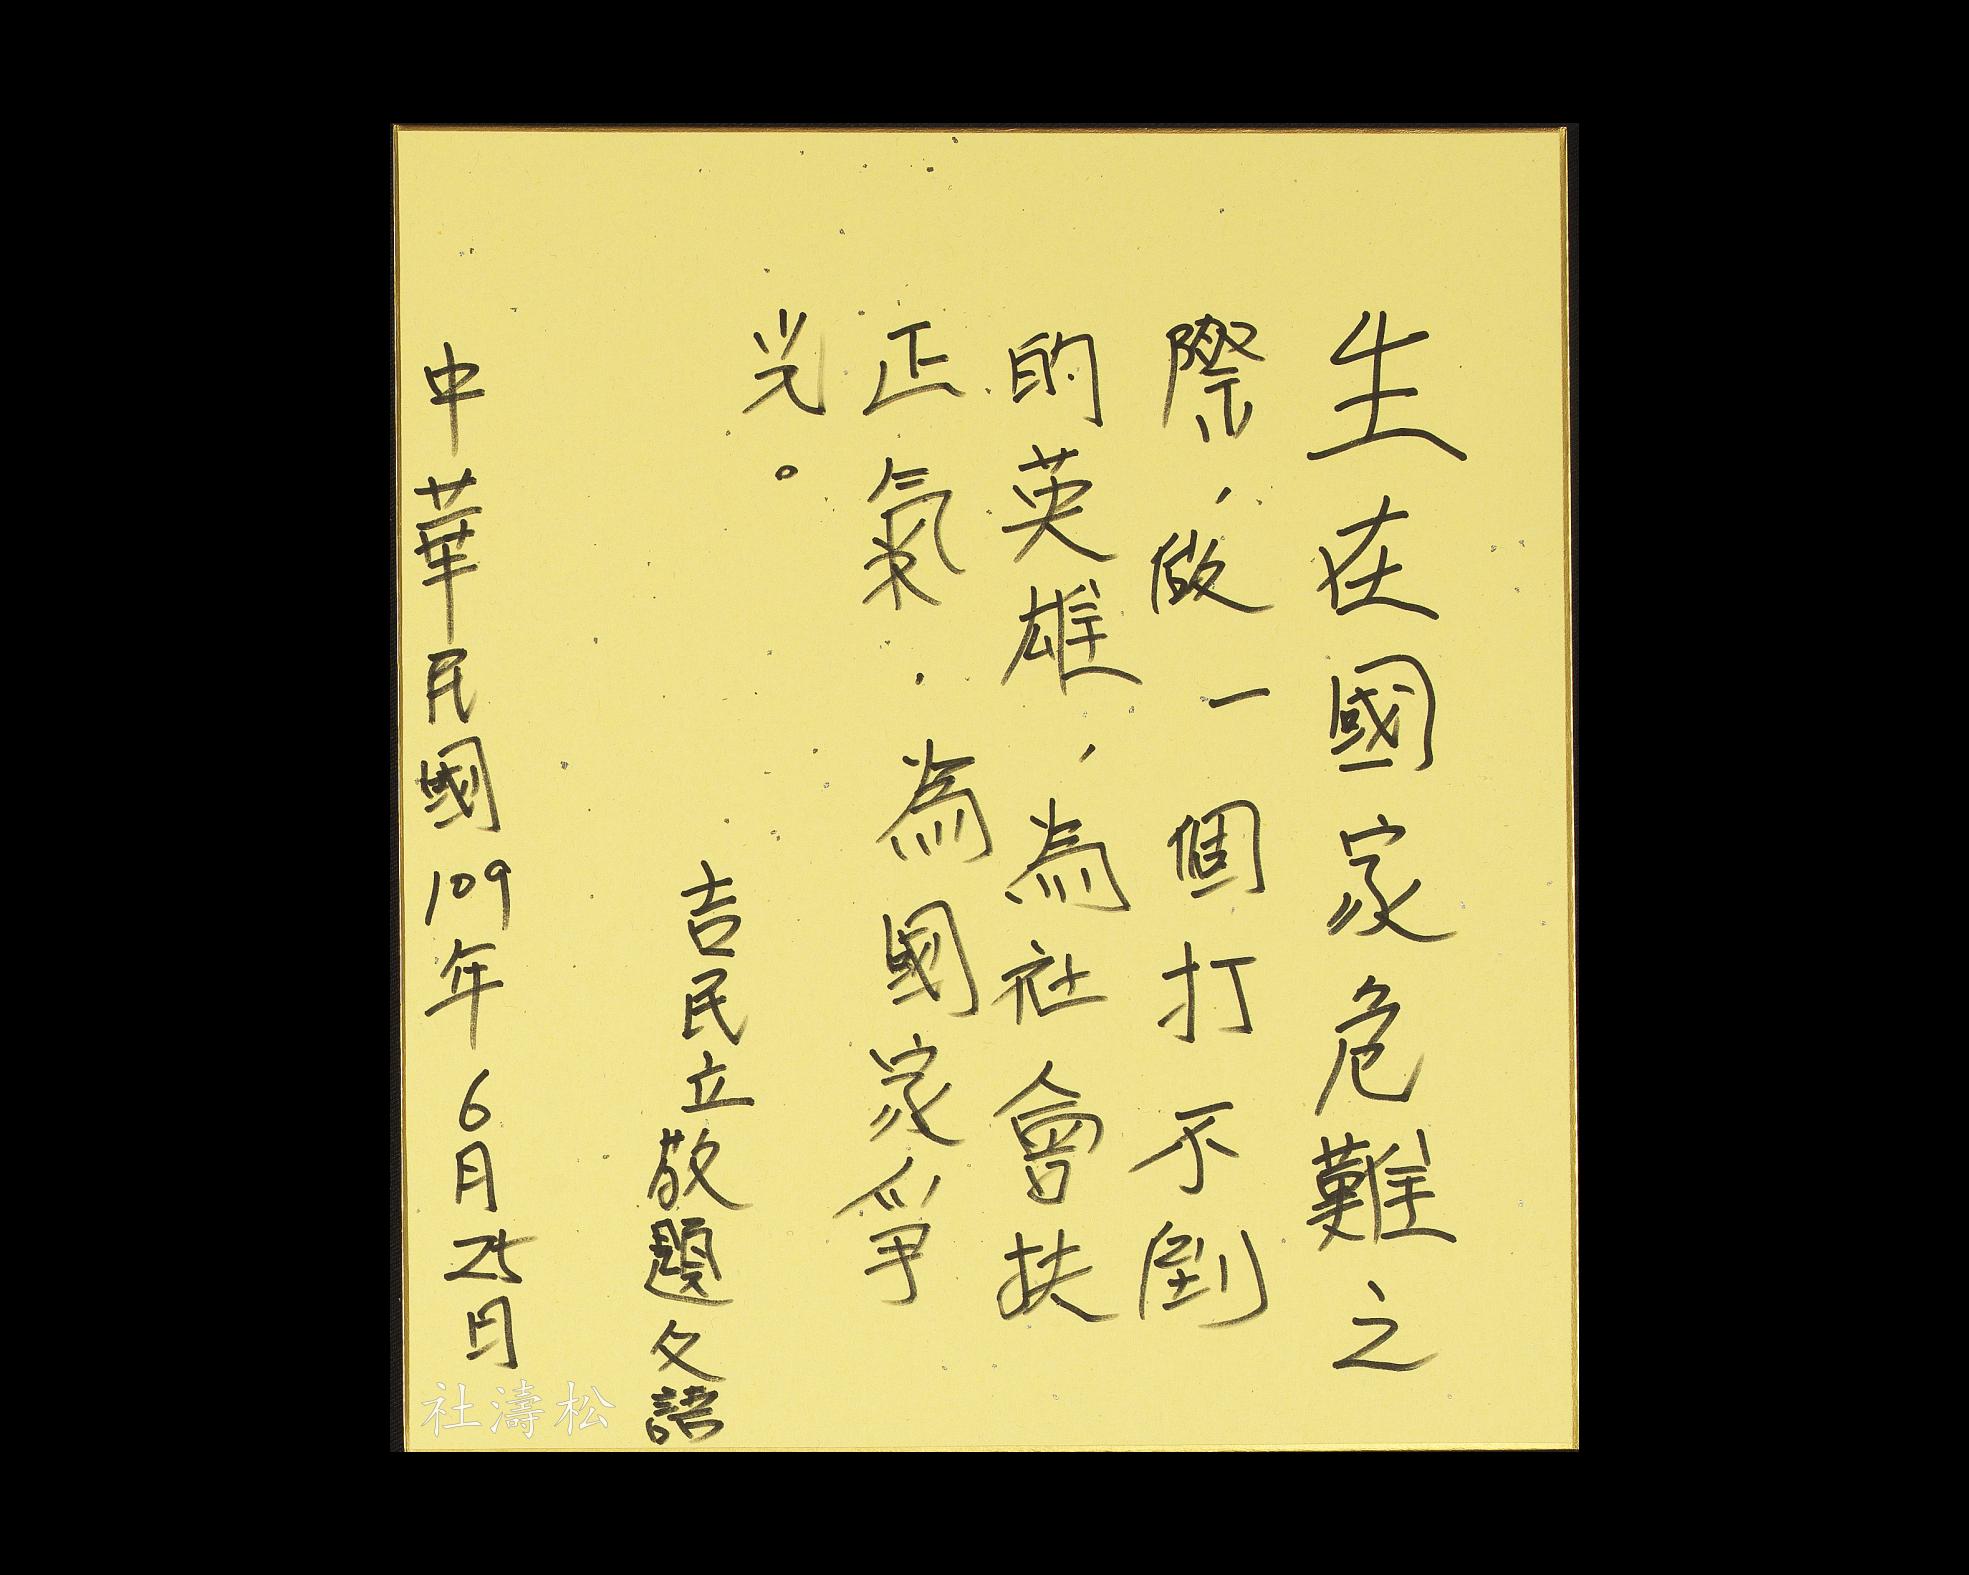 生在國家危難之
際，做一個打不倒
的英雄，為社會扶
正氣，為國家爭
光。
吉民立敬題父語
中華民國109年6月25日
社濤松